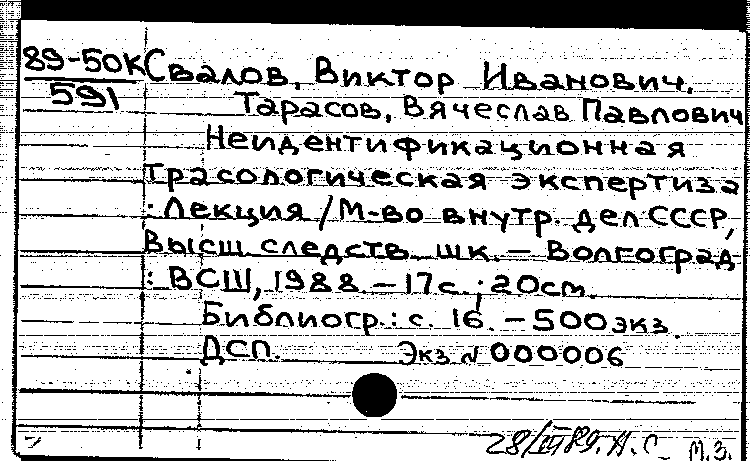 89-50К Свалов, Виктор Иванович.
591 Тарасов, Вячеслав Павлович
Неидентификационная
трасологическая экспертиза
: Лекция / М-во внутр. дел СССР,
Высш. следств. шк. – Волгоград
: ВСШ, 1988. – 17 с. ; 20 см.
Библиогр.: с. 16. – 500 экз.
ДСП. Экз. № 000006
28/III 89. Н. С. М.З.